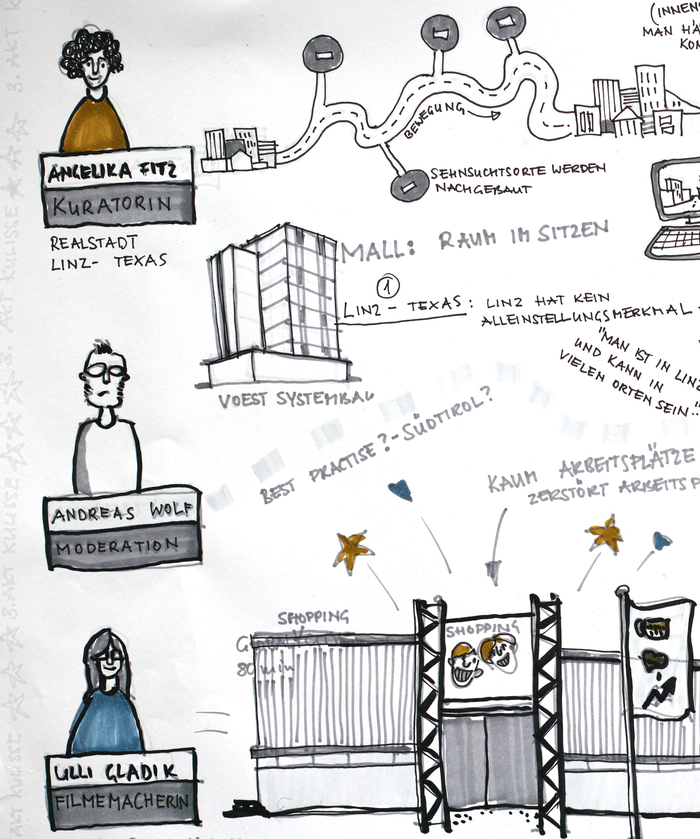 ANGELIKA FITZ
KURATORIN
REALSTADT
LINZ - TEXAS
BEWEGUNG
SEHNSUCHTSORTE WERDEN
NACHGEBAUT
MALL: RAUM IM SITZEN
1
LINZ - TEXAS: LINZ HAT KEIN
ALLEINSTELLUNGSMERKMAL
"MAN IST IN LINZ
UND KANN IN
VIELEN ORTEN SEIN."
VOEST SYSTEMBAU
BEST PRACTISE? - SÜDTIROL?
ANDREAS WOLF
MODERATION
KAUM ARBEITSPLÄTZE
ZERSTÖRT ARBEITSP
SHOPPING
80 min
SHOPPING
ULLI GLADIK
FILMEMACHERIN
3. AKT KULISSE
3. AKT KULISSE
3. AKT KULISSE
AKT KULISSE
(INNEN
MAN HÄ